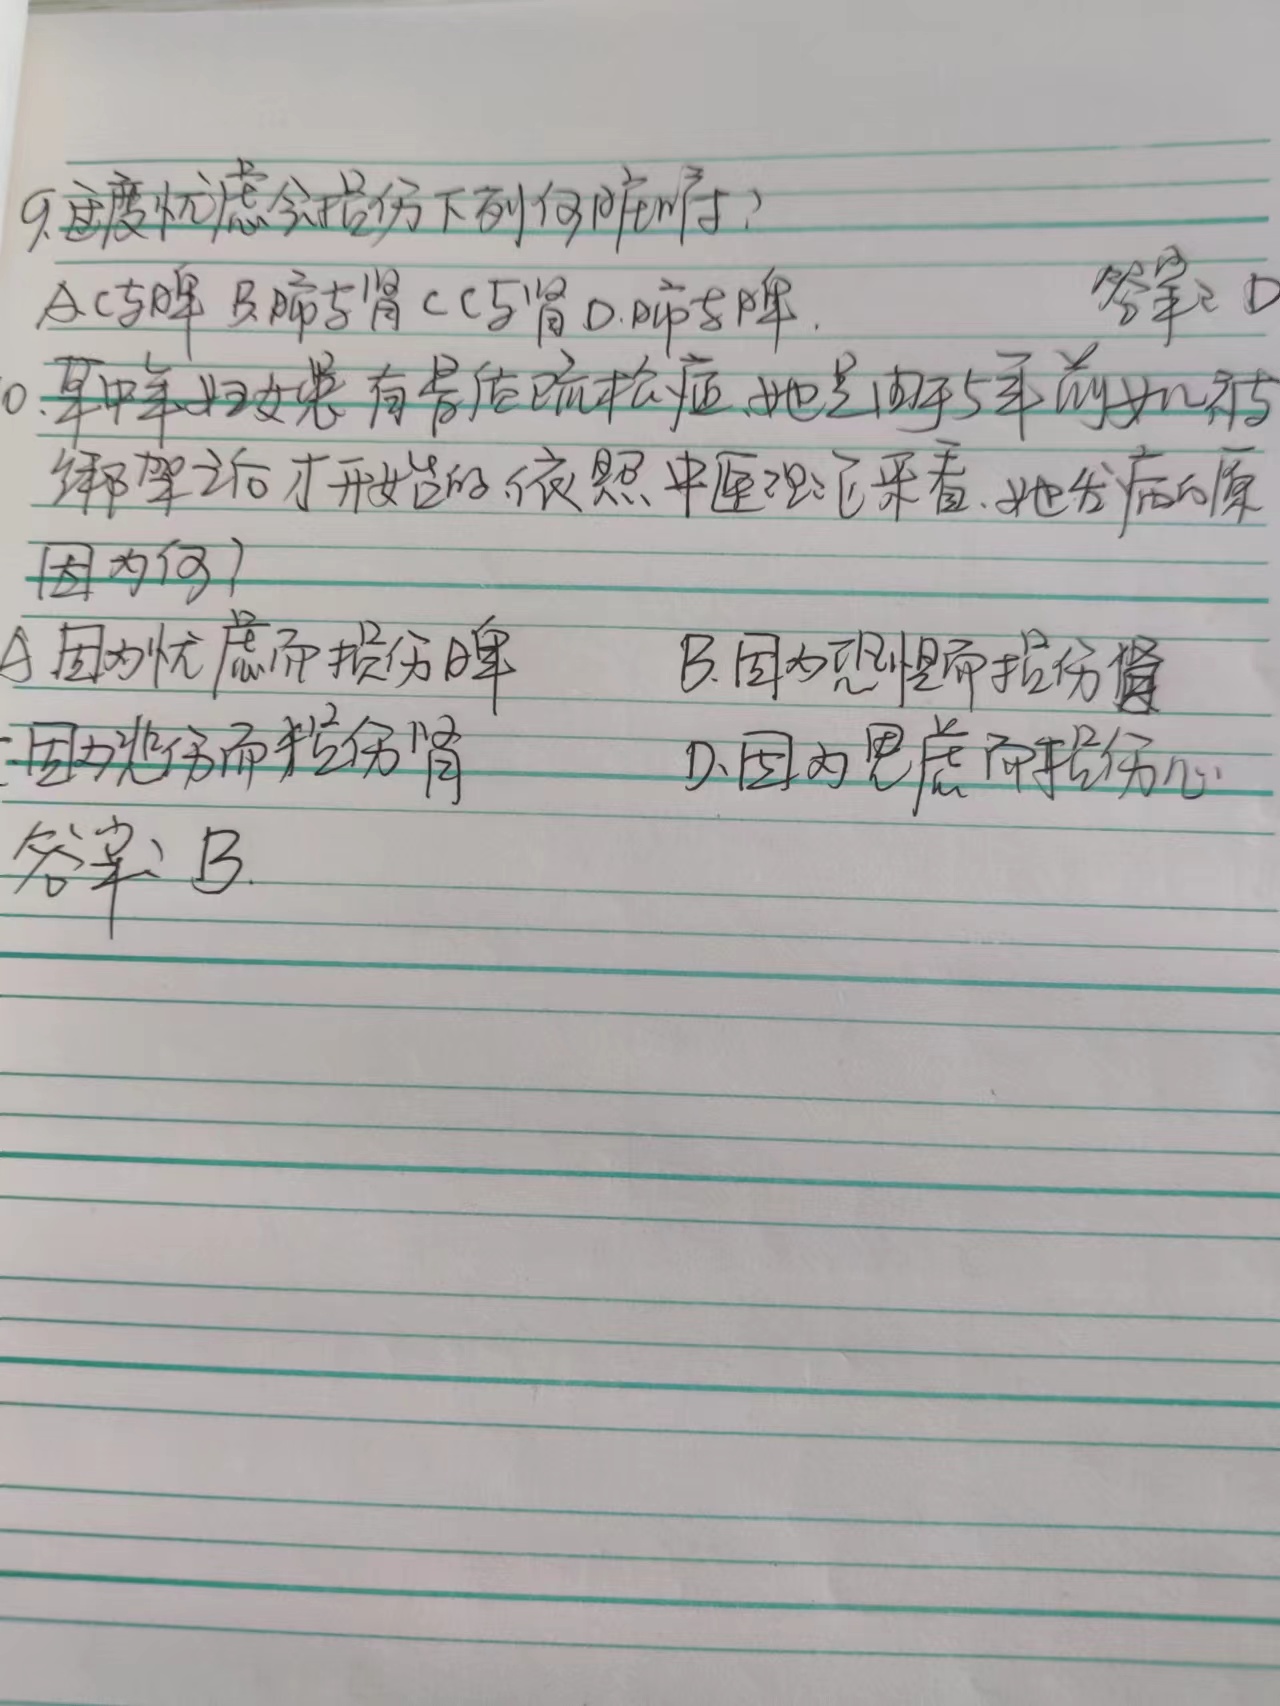 9.过度忧虑会损伤下列何脏腑?
A.心与脾 B.肺与肾 C.心与肾 D.肺与脾. 答案:D
0.某中年妇女患有骨质疏松症,她是由于5年前女儿被
绑架之后才开始的,依照中医理论来看,她发病的原
因为何?
A.因为忧虑而损伤脾 B.因为恐惧而损伤肾
因为悲伤而损伤肾 D、因为思虑而损伤心
答案:B.